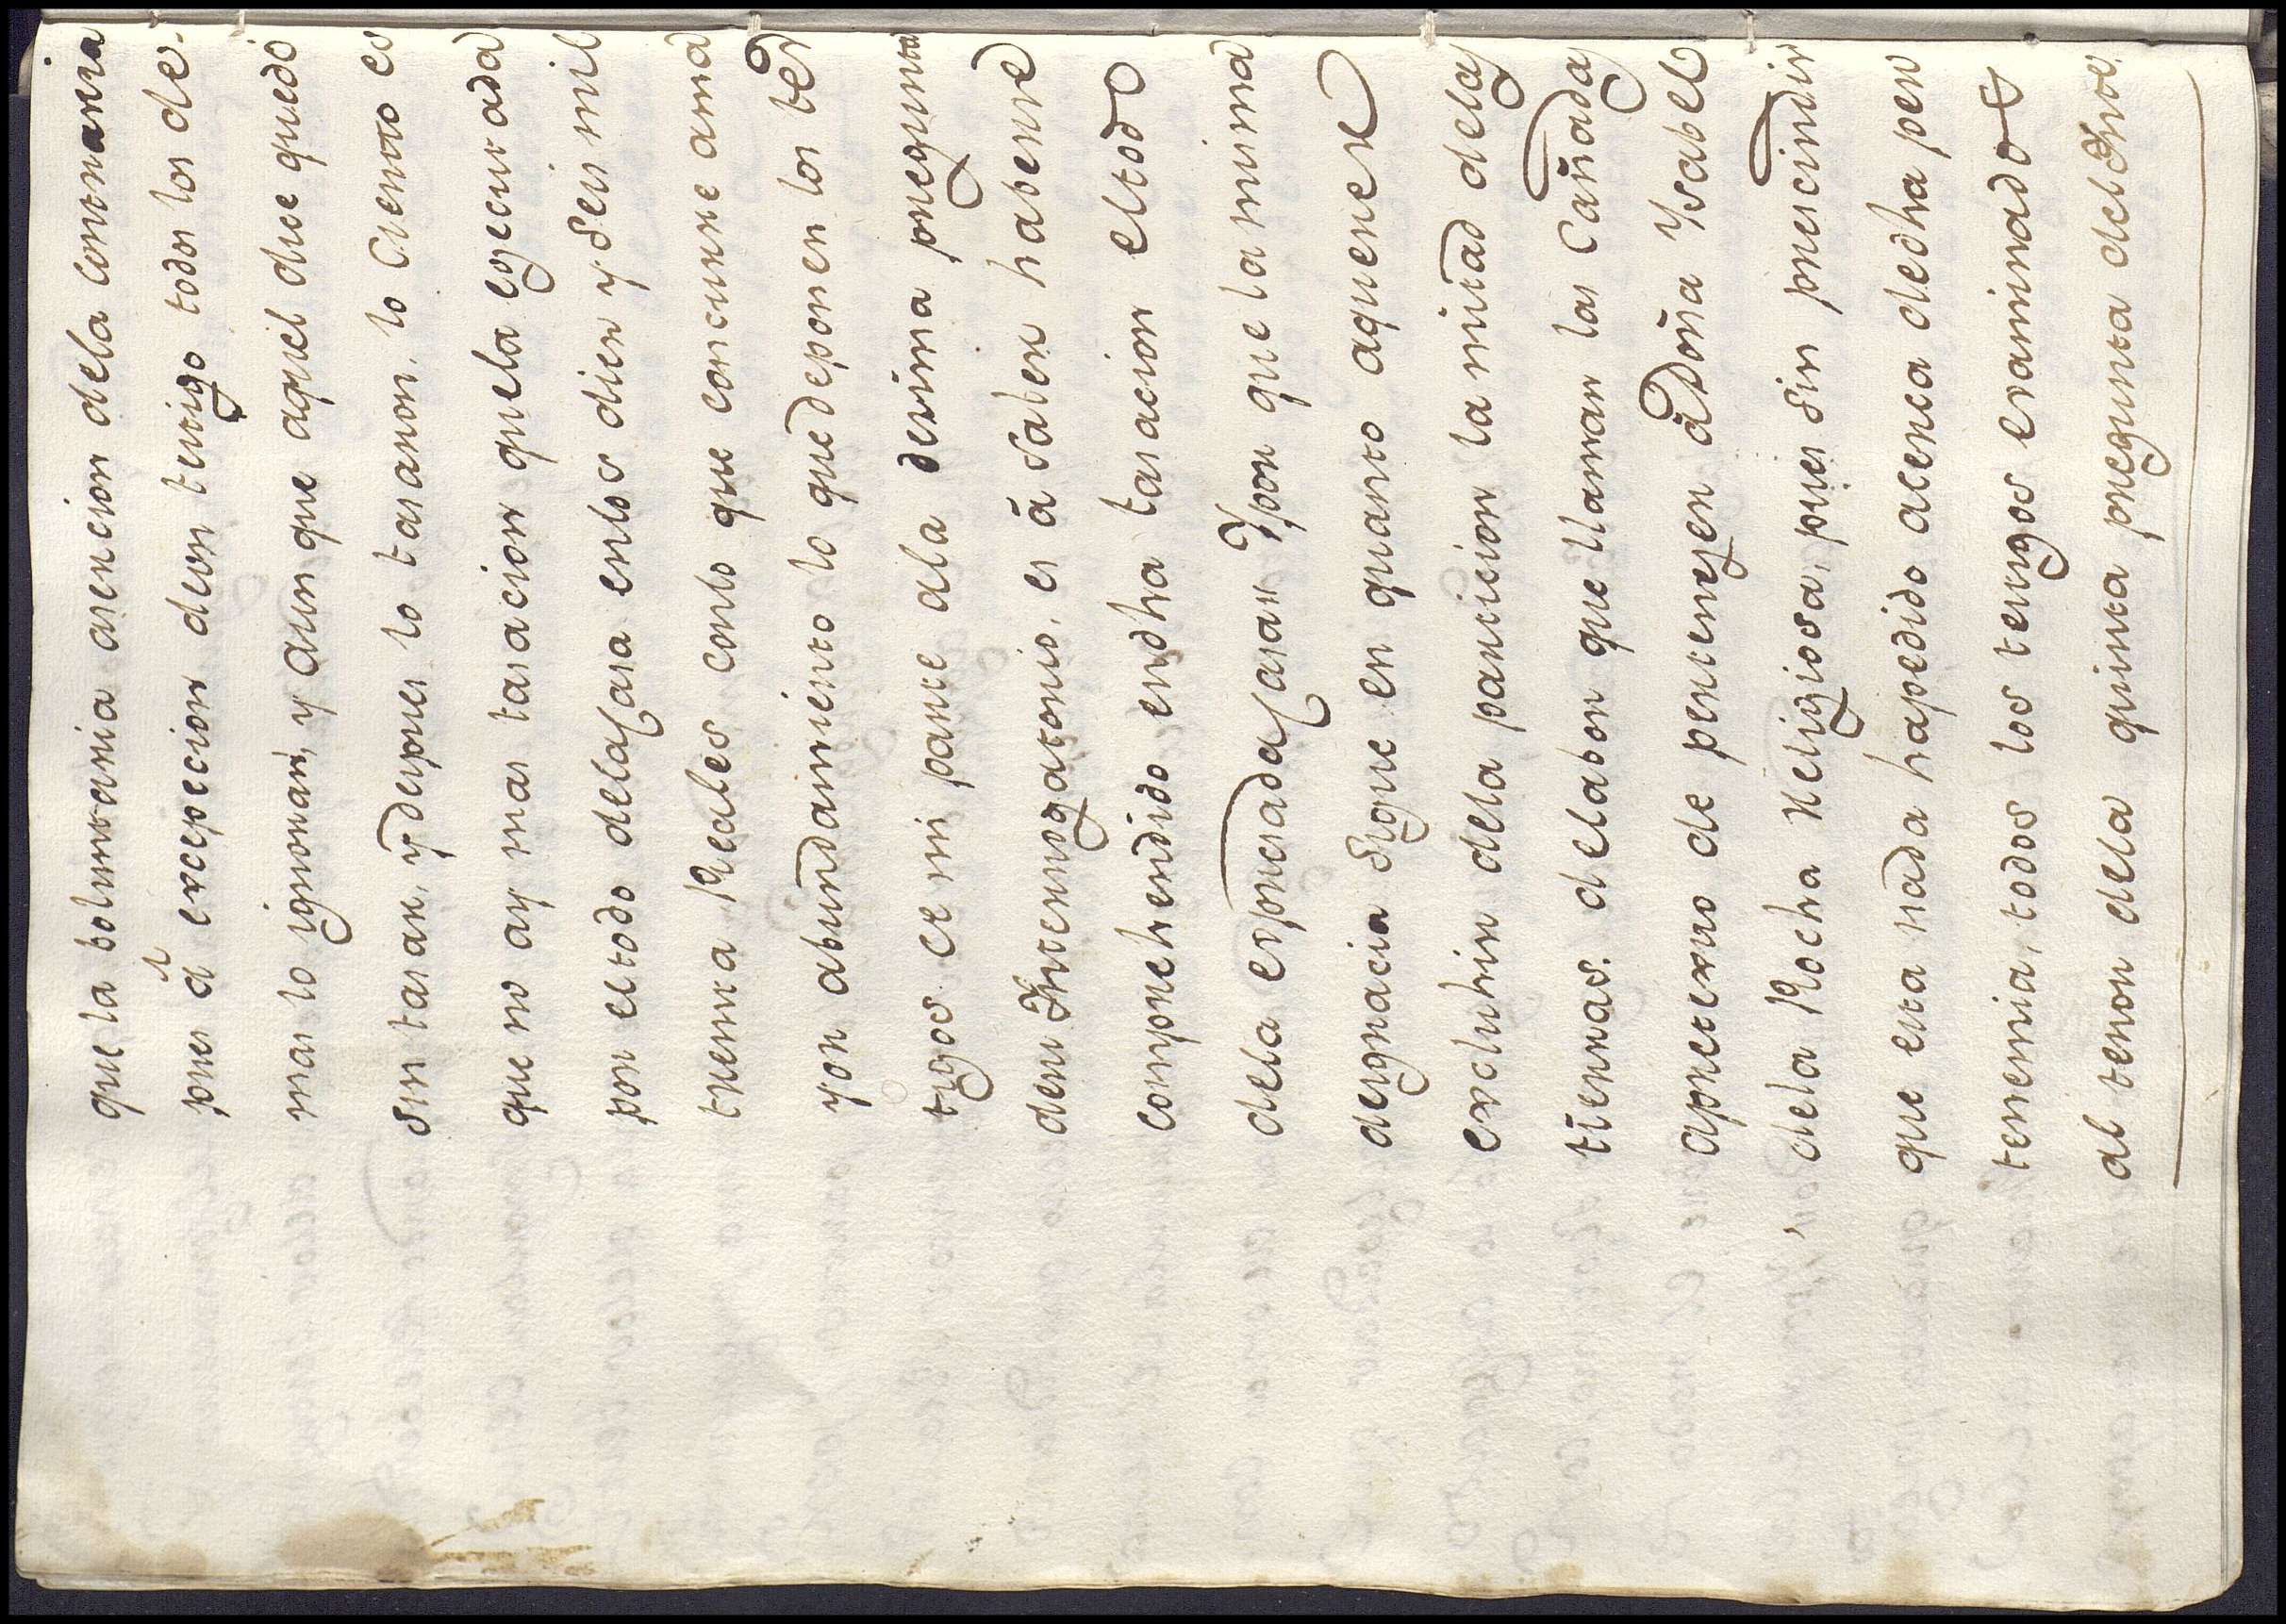 que la boluntaria asencion dela contraria
pues â excepcion deun testigo todos los de-
mas lo ignoran, y aun que aquel dice quedó
sin tasar, y despues lo tasaron, lo Cierto es
que no ay mas tasacion quela egecutada
por el todo dela Casa en los diez y seis mil
treinta Reales con lo que concurre a ma
yor abundamiento lo que deponen los tes
tigos de mi parte ala desima pregunta
desu Interrogatorio, es â saber haberse
comprehendido en dha tasacion el todo
dela expresada Casa: Y por que la misma
desgnacia sigue en quanto aquerer
excluhir dela particion la mitad delas
tierras, delabor que llaman las Cañadas
apretexto de pertenezen â Doña Ysabel
dela Rocha Religiosa, pues sin prescindir
que esta nada ha pedido acerca de dha per
tenenia, todos los testigos examinados
al tenor dela quinta pregunta del Inte.